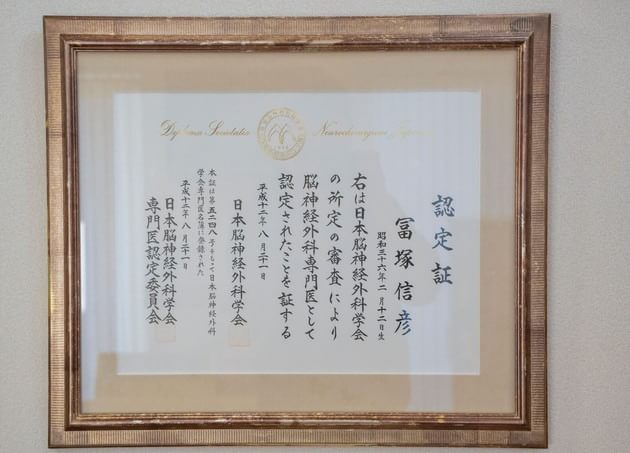 Diploma Societatis Neurochirurgiae Japoniae
認定証
冨塚信彦
昭和三十六年二月十二日生
右は日本脳神経外科学会
の所定の審査により
脳神経外科専門医として
認定されたことを証する
平成十二年八月二一日
日本脳神経外科学会
本証は第五二四八号をもって日本脳神経外科
学会専門医名簿に登録された
平成十二年八月二一日
日本脳神経外科学会
専門医認定委員会